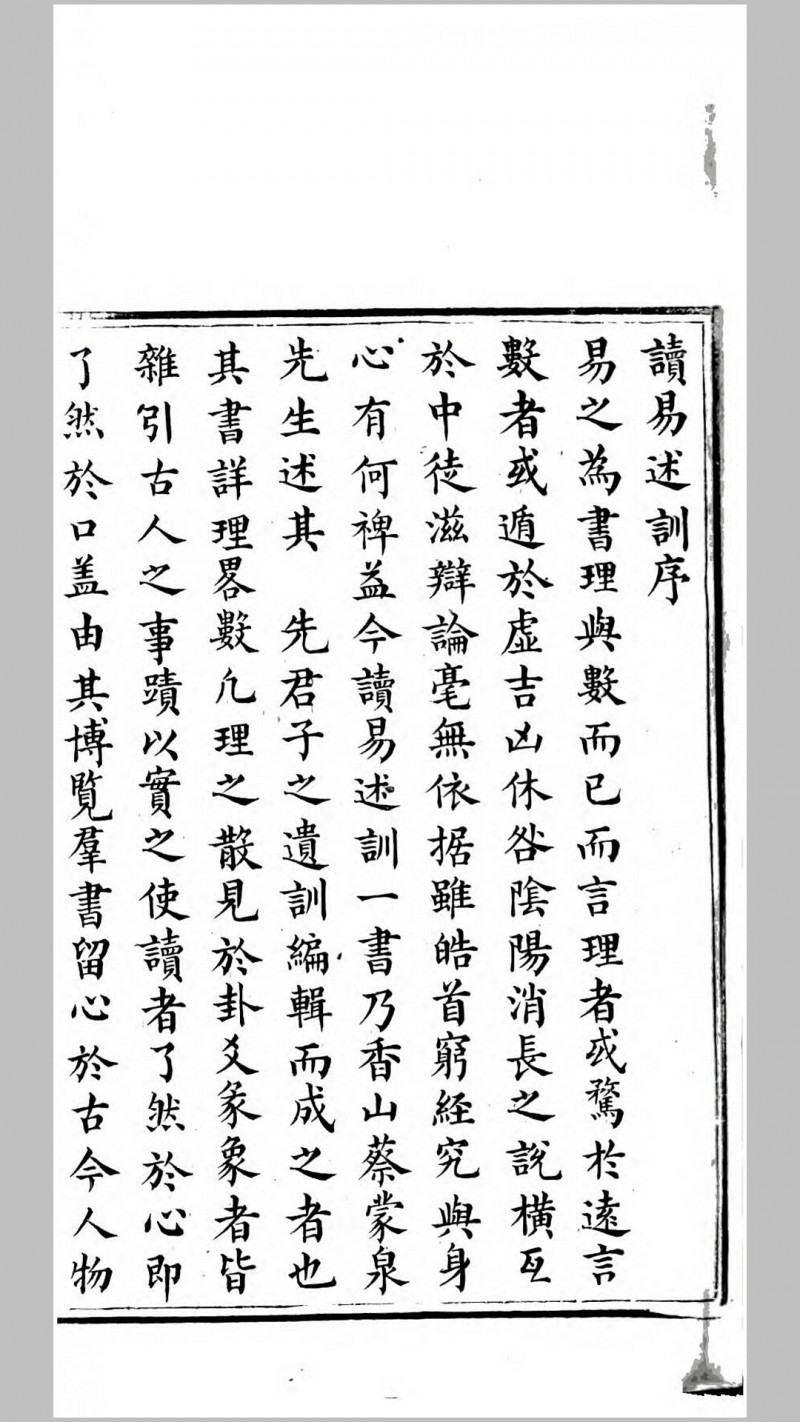 讀易述訓序
易之為書理與數而已而言理者或騖於遠言
數者或遁於虛吉凶休咎陰陽消長之說橫亙
於中徒滋辯論毫無依据雖皓首窮經究與身
心有何裨益今讀易述訓一書乃香山蔡蒙泉
先生述其　先君子之遺訓編輯而成之者也
其書詳理畧數凢理之散見於卦爻彖象者皆
雜引古人之事蹟以實之使讀者了然於心即
了然於口盖由其博覧羣書留心於古今人物